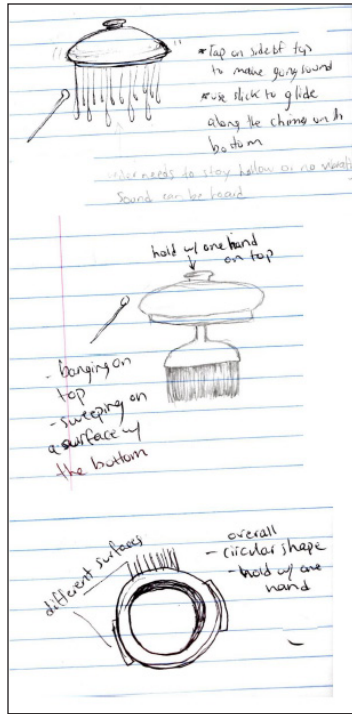 * Tap on side of top
to make gong sound
* use stick to glide
along the chime on th
bottom
needs to stay hollow or no vibrati
sound can be heard
hold w/ one hand
on top
- banging on
top
- sweeping on
a surface w/
the bottom
different surfaces
overall
- circular shape
- hold w/ one
hand